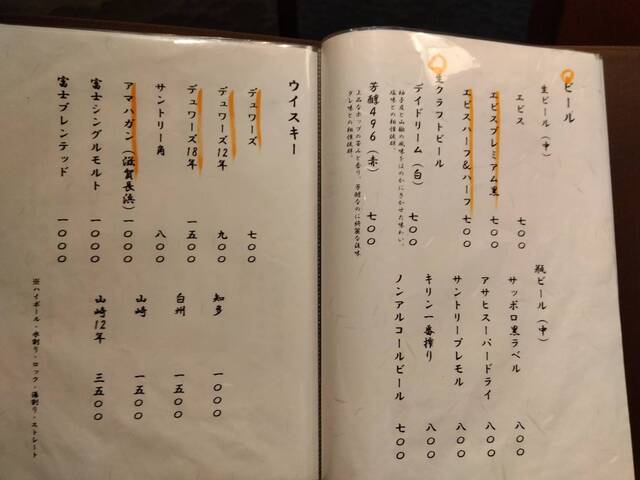 ビール
生ビール（中）
エビス 七〇〇
エビスプレミアム黒 七〇〇
エビスハーフ&ハーフ 七〇〇
生クラフトビール
デイドリーム（白） 七〇〇
柚子皮と山椒の風味をほのかにきかせた味わい。
塩味との相性抜群。
芳醇496（赤） 七〇〇
上品なホップの苦みと香り。芳醇なのに綺麗な後味
タレ味との相性抜群。
瓶ビール（中）
サッポロ黒ラベル 八〇〇
アサヒスーパードライ 八〇〇
サントリープレモル 八〇〇
キリン一番搾り 八〇〇
ノンアルコールビール 七〇〇
ウイスキー
デュワーズ 七〇〇
デュワーズ12年 九〇〇
デュワーズ18年 一五〇〇
サントリー角 八〇〇
アマハガン（滋賀長浜） 一〇〇〇
富士シングルモルト 一〇〇〇
富士ブレンテッド 一〇〇〇
知多 一〇〇〇
白州 一五〇〇
山崎 一五〇〇
山崎12年 三五〇〇
※ハイボール・水割り・ロック・湯割り・ストレート